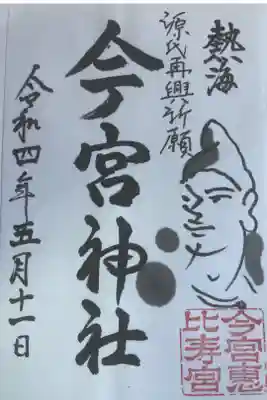 熱海
源氏再興祈願
今宮神社
令和四年五月十一日
今宮恵
比寿宮